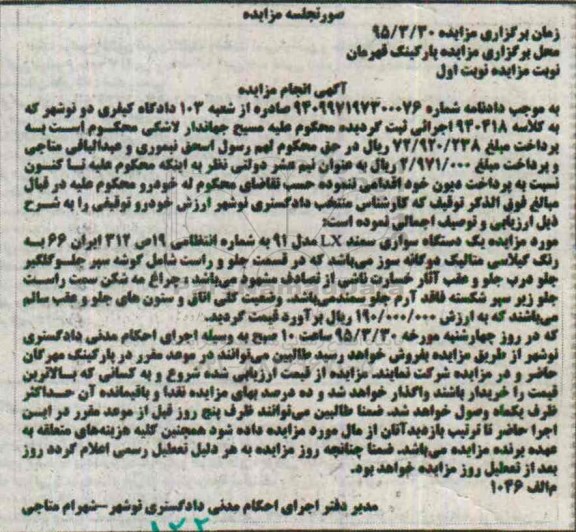 صورتجلسه مزایده
زمان برگزاری مزایده ۹۵/۳/۳۰
محل برگزاری مزایده پارکینگ قهرمان
نوبت مزایده نوبت اول
آگهی انجام مزایده
به موجب دادنامه شماره ۹۴۰۹۹۷۱۹۷۳۰۰۰۷۶ صادره از شعبه ۱۰۳ دادگاه کیفری دو نوشهر که
به کلاسه ۹۴۰۴۱۸ اجرائی ثبت گردیده محکوم علیه مسیح جهاندار لاشکی محکوم است به
پرداخت مبلغ ۷۲/۹۲۰/۲۳۸ ریال در حق محکوم لهم رسول اسحق نیموری و عبدالباقی متاجی
و پرداخت مبلغ ۲/۹۷۱/۰۰۰ ریال به عنوان نیم عشر دولتی نظر به اینکه محکوم علیه تا کنون
نسبت به پرداخت دیون خود اقدامی ننموده حسب تقاضای محکوم له خودرو محکوم علیه در قبال
مبالغ فوق الذکر توقیف که کارشناس منتخب دادگستری نوشهر ارزش خودرو توقیفی را به شرح
ذیل ارزیابی و توصیف اجمالی نموده است:
مورد مزایده یک دستگاه سواری سمند LX مدل ۹۱ به شماره انتظامی ۱۹ص ۳۱۲ ایران ۶۶ به
رنگ گیلاسی متالیک دوگانه سوز می‌باشد که در قسمت جلو و راست شامل گوشه سپر جلو_گلگیر
جلو درب جلو و عقب آثار خسارت ناشی از تصادف مشهود می‌باشد و چراغ مه شکن سمت راست
جلو زیر سپر شکسته فاقد آرم جلو سمندمی‌باشد. وضعیت کلی اتاق و ستون های جلو و عقب سالم
می‌باشند که به ارزش ۱۹۰/۰۰۰/۰۰۰ ریال برآورد قیمت گردید.
که در روز چهارشنبه مورخه ۹۵/۳/۳۰ ساعت ۱۰ صبح به وسیله اجرای احکام مدنی دادگستری
نوشهر از طریق مزایده بفروش خواهد رسید طالبین می‌توانند در موعد مقرر در پارکینگ مهرگان
حاضر و در مزایده شرکت نمایند. مزایده از قیمت ارزیابی شده شروع و به کسانی که بالاترین
قیمت را خریدار باشند واگذار خواهد شد و ده درصد بهای مزایده نقدا و باقیمانده آن حداکثر
ظرف یکماه وصول خواهد شد. ضمنا طالبین می‌توانند ظرف پنج روز قبل از موعد مقرر در این
اجرا حاضر تا ترتیب بازدیدآنان از مال مورد مزایده داده شود همچنین کلیه هزینه‌های متعلقه به
عهده برنده مزایده می‌باشد. ضمنا چنانچه روز مزایده به هر دلیل تعطیل رسمی اعلام گردد روز
بعد از تعطیل روز مزایده خواهد بود.
م‌الف ۱۰۴۶
مدیر دفتر اجرای احکام مدنی دادگستری نوشهر-شهرام متاجی